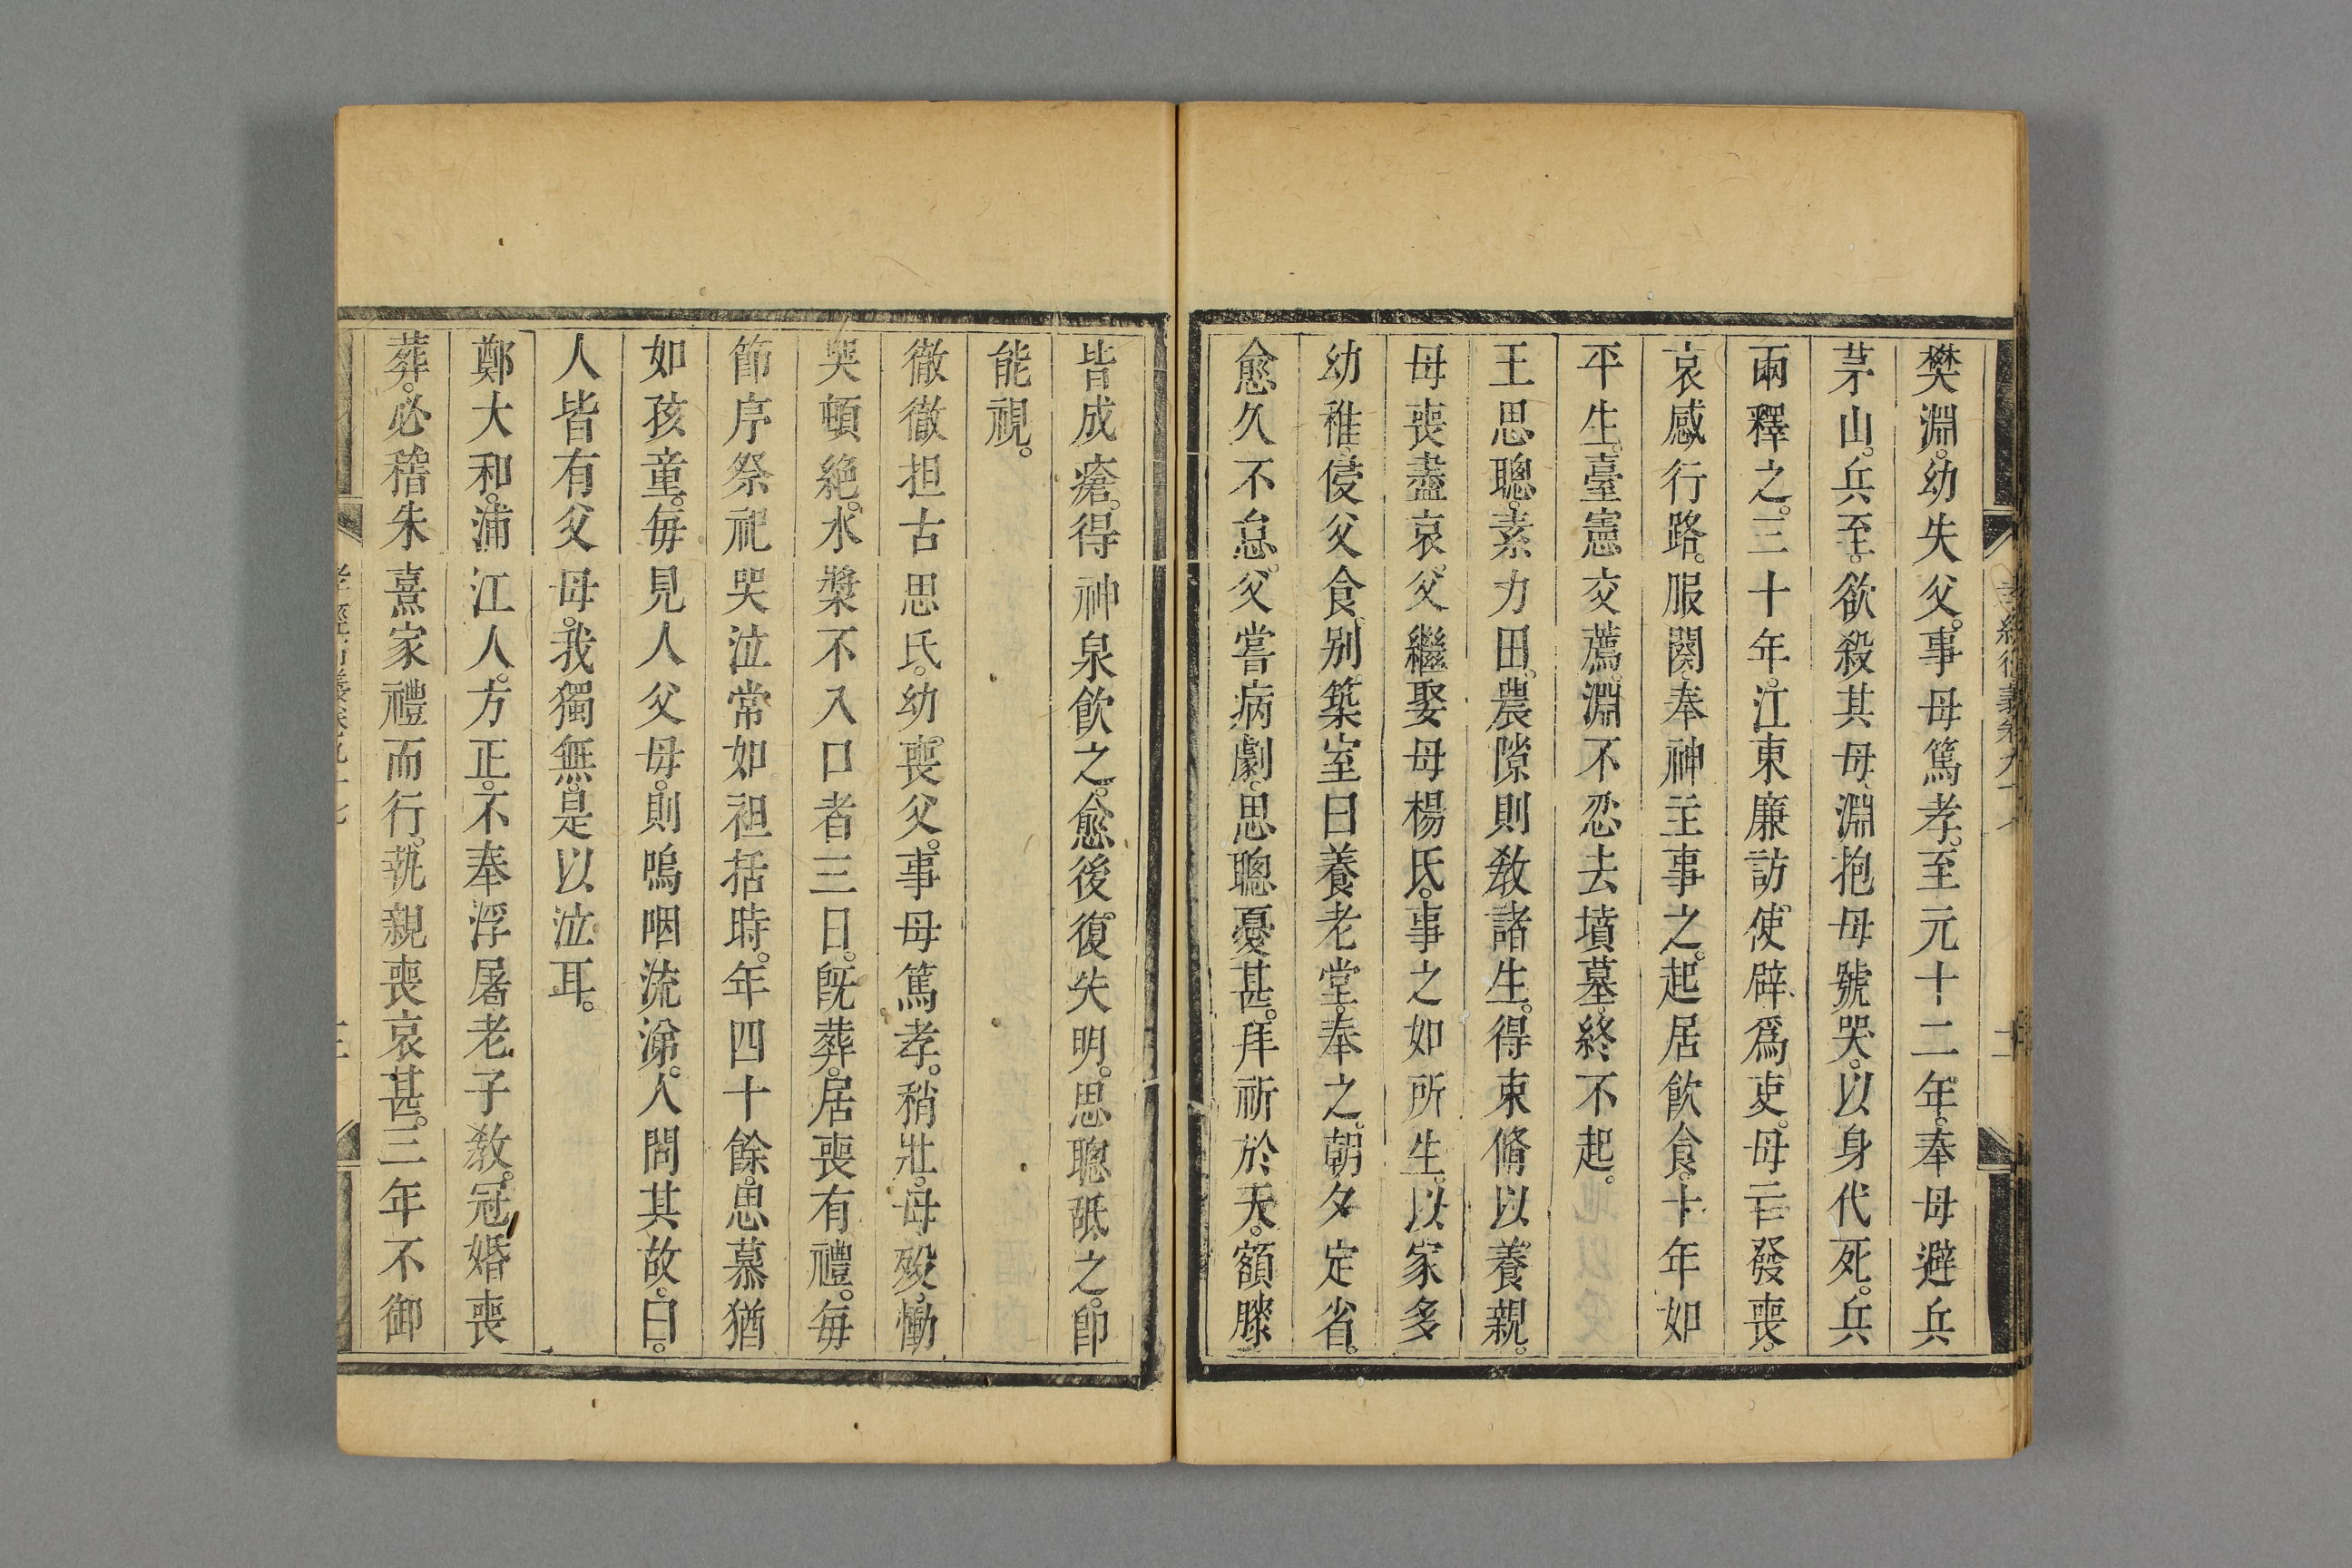 樊淵。幼失父。事母篤孝。至元十二年。奉母避兵
茅山。兵至。欲殺其母、淵抱母號哭。以身代死。兵
兩釋之。三十年。江東廉訪使辟爲吏。母亡發喪。
哀感行路。服闋、奉神主事之。起居飲食。十年如
平生。臺憲交薦。淵不忍去墳墓、終不起。
王思聰。素力田。農隙則敎諸生。得束脩以養親。
母喪盡哀。父繼娶母楊氏。事之如所生。以家多
幼稚、侵父食、别築室曰養老堂。奉之。朝夕定省。
愈久不怠。父嘗病劇。思聰憂甚。拜祈於天。額膝
皆成瘡。得神泉飲之。愈後復失明。思聰舐之。卽
能視。
徹徹担古思氏。幼喪父。事母篤孝。稍壯。母歿。慟
哭頓絶。水漿不入口者三日。旣葬。居喪有禮。每
節序祭祀哭泣常如袒括時。年四十餘。思慕猶
如孩童。每見人父母。則嗚咽流涕。人問其故。曰。
人皆有父母。我獨無。是以泣耳。
鄭大和。浦江人。方正。不奉浮屠老子敎。冠婚喪
葬。必稽朱熹家禮而行。執親喪哀甚。三年不御